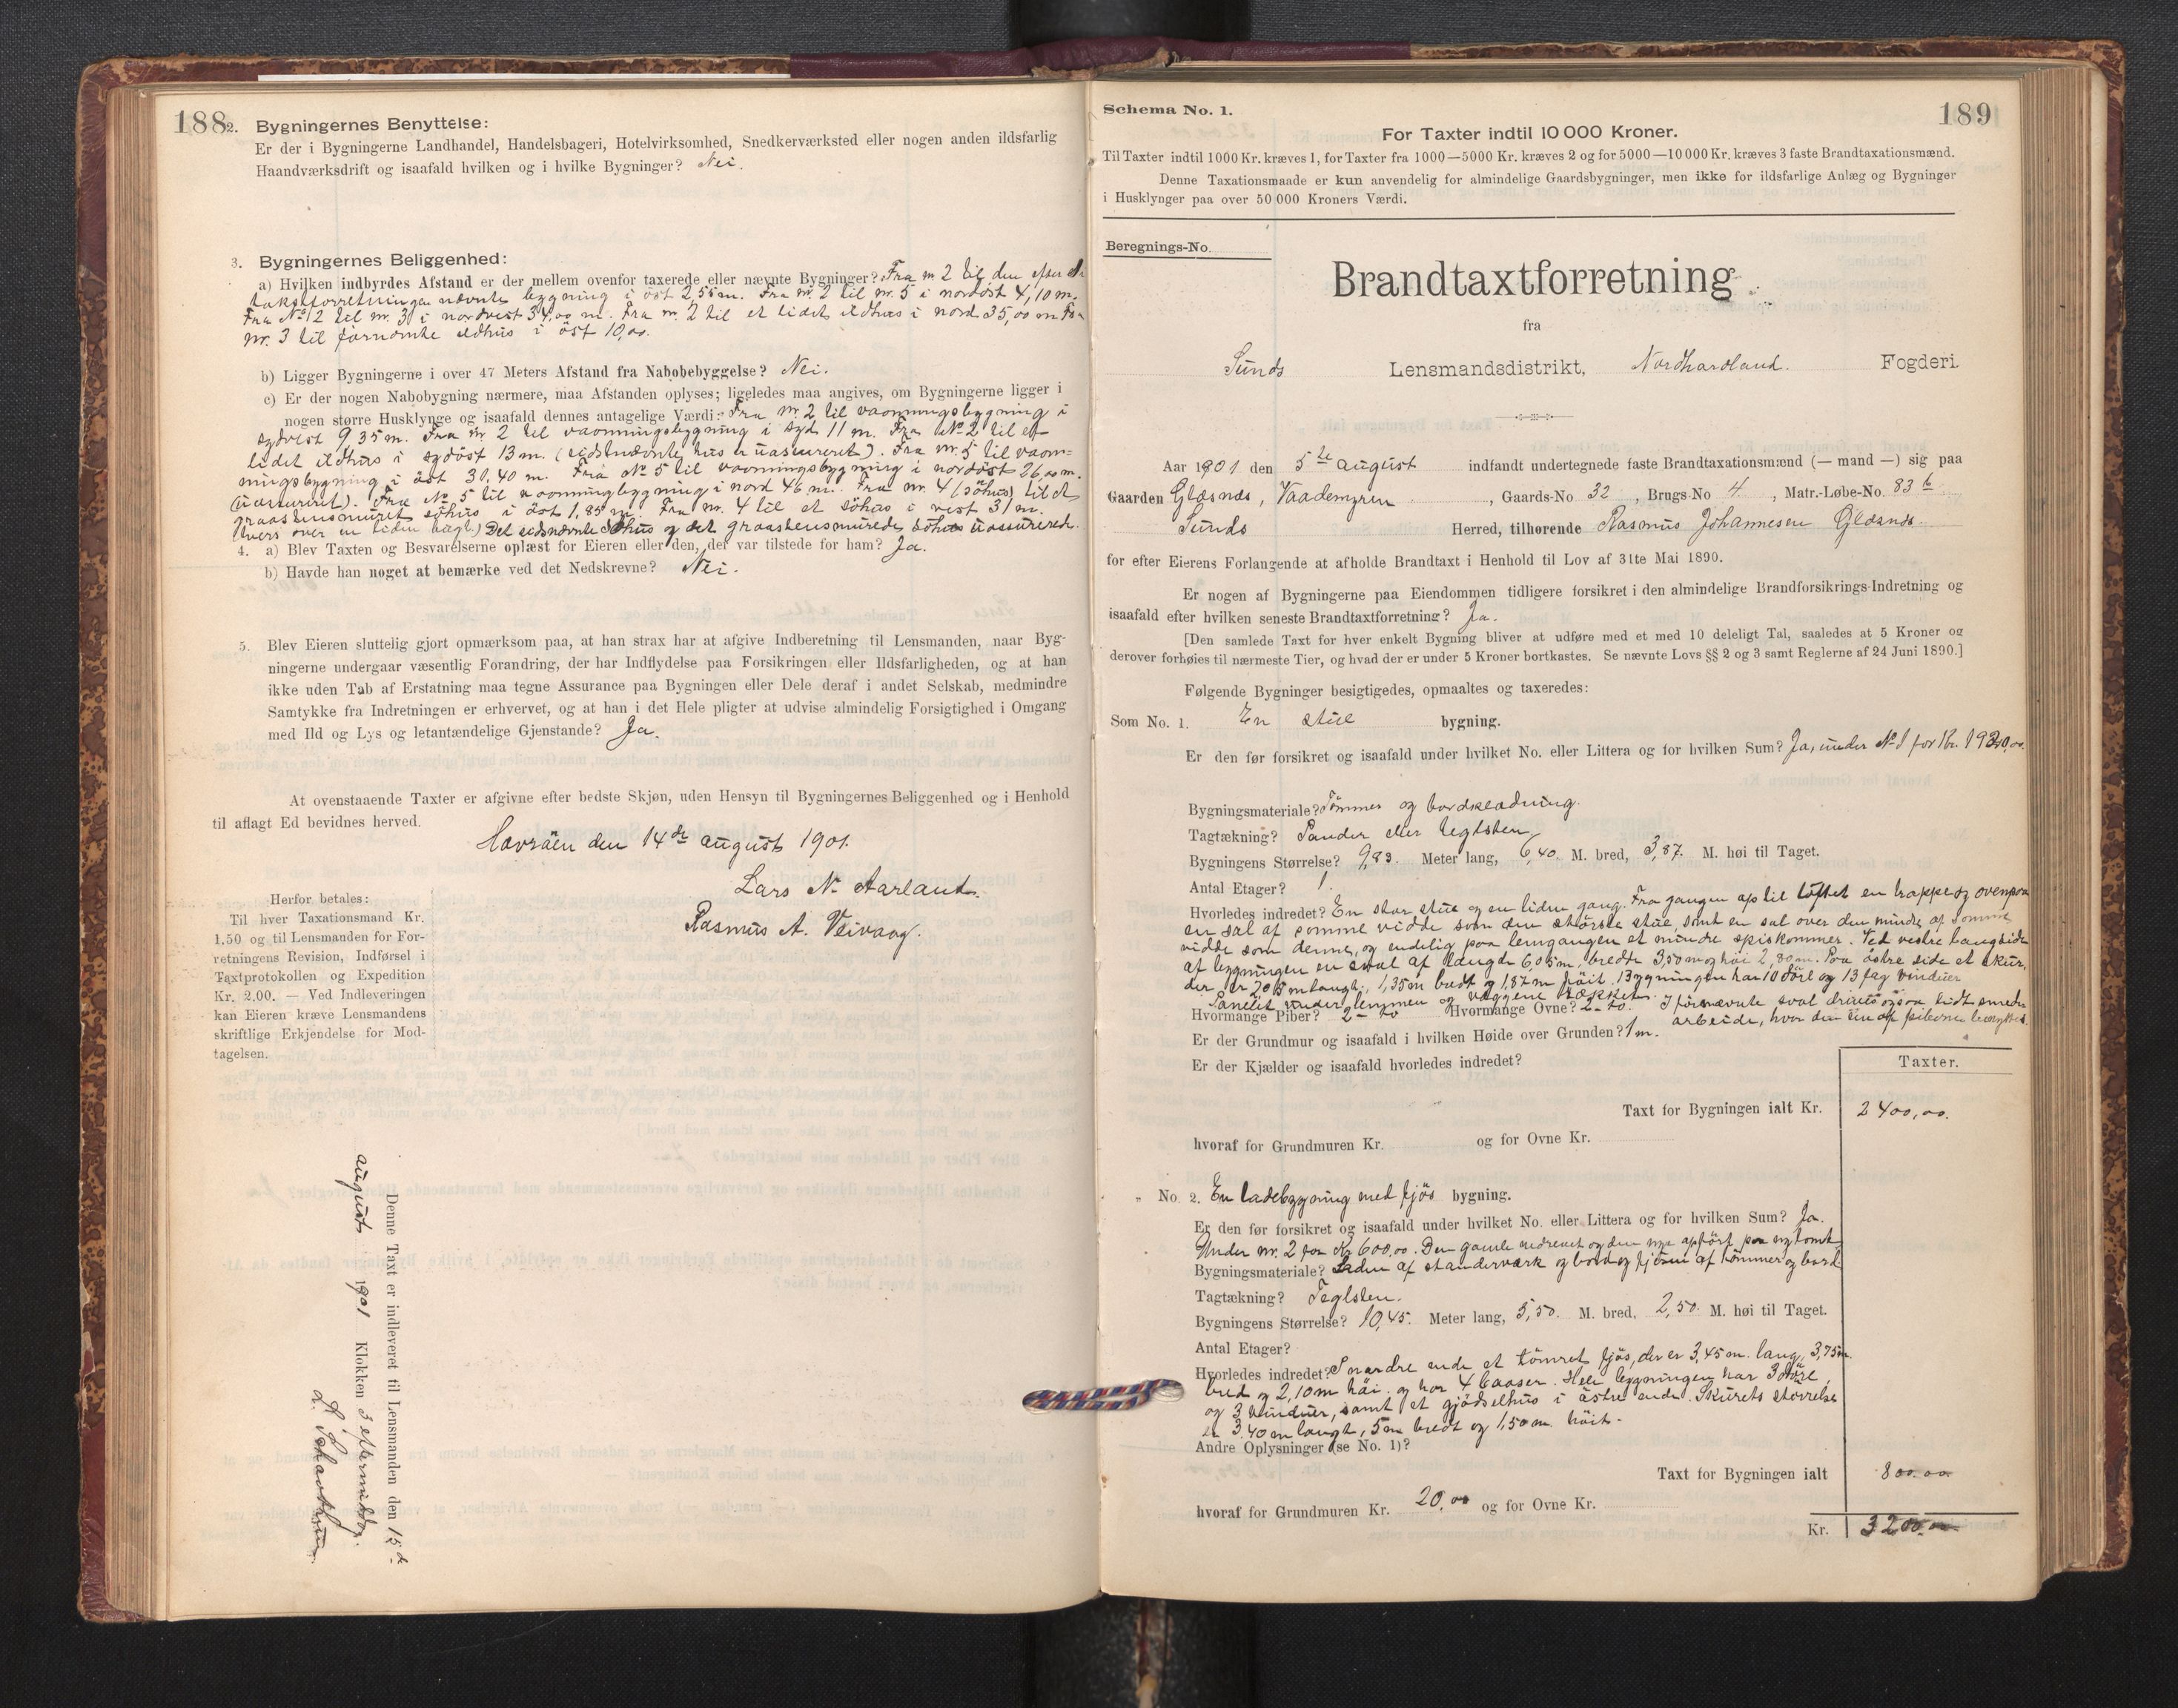 188
2. Bygningernes Benyttelse:
Er der i Bygningerne Landhandel, Handelsbageri, Hotelvirksomhed, Snedkerværksted eller nogen anden ildsfarlig
Haandværksdrift og isaafald hvilken og i hvilke Bygninger? Nei.
3. Bygningernes Beliggenhed:
a) Hvilken indbyrdes Afstand er der mellem ovenfor taxerede eller nævnte Bygninger? Fra nr 2 til den efter
takstforretningen nævnte bygning i öst 2 55 m. Fra nr. 2 til nr. 5 i nordöst 4,10 m.
Fra No 2 til nr. 3 i nordvest 34,00 m. Fra nr. 2 til et lidet ildhus i nord 35,00 m Fra
nr. 3 til förnævnte ildhus i öst 10,00.
b) Ligger Bygningerne i over 47 Meters Afstand fra Nabobebyggelse? Nei.
c) Er der nogen Nabobygning nærmere, maa Afstanden oplyses; ligeledes maa angives, om Bygningerne ligger i
nogen større Husklynge og isaafald dennes antagelige Værdi: Fra nr. 2 til vaaningsbygning i
sydvest 9,35 m. Fra nr 2 til vaaningsbygning i syd 11 m. Fra No 2 til et
lidet ildhus i sydöst 13 m. (sidstnævnte hus er uassureret). Fra nr. 5 til vaan-
ingsbygning i öst 30,40 m. Fra No 5 til vaaningsbygning i nordöst 26,00 m.
(uassureret). Fra No 5 til vaaningbygning i nord 46 m. Fra nr. 4 (söhus) til et
graastensmuret söhus i öst 1,85 m. Fra nr. 4 til et söhus i vest 31 m.
(tvers over en liden vaag.) Det sidsnævnte söhus og det graastensmurede söhus uassurerede.
4. a) Blev Taxten og Besvarelserne oplæst for Eieren eller den, der var tilstede for ham? Ja.
b) Havde han noget at bemærke ved det Nedskrevne? Nei.
5. Blev Eieren sluttelig gjort opmærksom paa, at han strax har at afgive Indberetning til Lensmanden, naar Byg-
ningerne undergaar væsentlig Forandring, der har Indflydelse paa Forsikringen eller Ildsfarligheden, og at han
ikke uden Tab af Erstatning maa tegne Assurance paa Bygningen eller Dele deraf i andet Selskab, medmindre
Samtykke fra Indretningen er erhvervet, og at han i det Hele pligter at udvise almindelig Forsigtighed i Omgang
med Ild og Lys og letantændelige Gjenstande? Ja.
At ovenstaaende Taxter er afgivne efter bedste Skjøn, uden Hensyn til Bygningernes Beliggenhed og i Henhold
til aflagt Ed bevidnes herved.
Havråen den 14de august 1901.
Lars N. Aarland.
Rasmus A. Veivaag.
Herfor betales:
Til hver Taxationsmand Kr.
1,50 og til Lensmanden for For-
retningens Revision, Indførsel i
Taxtprotokollen og Expedition
Kr. 2.00. — Ved Indleveringen
kan Eieren kræve Lensmandens
skriftlige Erkjendelse for Mod-
tagelsen.
Denne Taxt er indleveret til Lensmanden den 15de
august 1901 Klokken 3 eftermiddag.
Schema No. 1.
189
For Taxter indtil 10 000 Kroner.
Til Taxter indtil 1000 Kr. kræves 1, for Taxter fra 1000—5000 Kr. kræves 2 og for 5000—10 000 Kr. kræves 3 faste Brandtaxationsmænd.
Denne Taxationsmaade er kun anvendelig for almindelige Gaardsbygninger, men ikke for ildsfarlige Anlæg og Bygninger
i Husklynger paa over 50 000 Kroners Værdi.
Beregnings-No.
Brandtaxtforretning
fra
Sunds Lensmandsdistrikt, Nordhordland. Fogderi.
Aar 1901 den 5te august indfandt undertegnede faste Brandtaxationsmænd (— mand —) sig paa
Gaarden Glæsnæs, Vaademyren, Gaards-No 32, Brugs-No 4, Matr.-Løbe-No. 83 b
Sunds Herred, tilhørende Rasmus Johannesen Glæsnæs
for efter Eierens Forlangende at afholde Brandtaxt i Henhold til Lov af 31te Mai 1890.
Er nogen af Bygningerne paa Eiendommen tidligere forsikret i den almindelige Brandforsikrings-Indretning og
isaafald efter hvilken seneste Brandtaxtforretning? Ja.
[Den samlede Taxt for hver enkelt Bygning bliver at udføre med et med 10 deleligt Tal, saaledes at 5 Kroner og
derover forhøies til nærmeste Tier, og hvad der er under 5 Kroner bortkastes. Se nævnte Lovs §§ 2 og 3 samt Reglerne af 24 Juni 1890.]
Følgende Bygninger besigtigedes, opmaaltes og taxeredes:
Som No. 1. En stue bygning.
Er den før forsikret og isaafald under hvilket No. eller Littera og for hvilken Sum? Ja, under No 1 for Kr.
Bygningsmateriale? Tömmer og bordklædning.
Tagtækning? Pander eller teglsten
Bygningens Størrelse? 9,83. Meter lang, 6,40. M. bred, 3,87. M. høi til Taget.
Antal Etager? 1.
Hvorledes indredet? En stor stue og en liden gang. Fra gangen op til loftet en trappe og ovenpaa
en sal af somme vidde som den störste stue, samt en sal over den mindre af somme
vidde som denne, og endelig paa lemgangen et mindre spiskommer. Ved vestre langside
af bygningen en sval af längde 6,05 m, bredde 3,50 m og höi 2,80 m. Paa östre side et skur,
der er 7,05 m langt, 1,35 m bredt og 1,87 m höit. Bygningen har 10 döre og 13 fag vinduer
Panelet under lemmen og væggene
Hvormange Piber? 2 - to Hvormange Ovne? 2 - to. I förnævnte sval drives ogsaa lidt smede-
arbeide, hvor den ene af piberne benyttes.
Er der Grundmur og isaafald i hvilken Høide over Grunden? 1 m.
Er der Kjælder og isaafald hvorledes indredet?
Taxter.
Taxt for Bygningen ialt Kr. 2400,00.
hvoraf for Grundmuren Kr. og for Ovne Kr.
„ No. 2. En ladebygning med fjös bygning.
Er den før forsikret og isaafald under hvilket No. eller Littera og for hvilken Sum? Ja.
Under nr. 2 for Kr 600,00. Den gamle nedrevet og den nye opfört paa ny tomt
Bygningsmateriale? Laden af standerværk og bord og fjösen af tömmer og bord
Tagtækning? Teglsten.
Bygningens Størrelse? 10,45. Meter lang, 5,50. M. bred, 2,50. M. høi til Taget.
Antal Etager?
Hvorledes indredet? I nordre ende et tömret fjös, der er 3,45 m. lang, 3,75 m.
bred og 2,10 m höi. og har 4 baaser. Hele bygningen har 3 döre,
og 3 vinduer, samt et gjödselhus i östre ende. Skurets störrelse
er 3.40 m langt, 5 m bredt og 1,50 m. höit.
Andre Oplysninger (se No. 1)?
Taxt for Bygningen ialt 800.00
hvoraf for Grundmuren Kr. 20,00 og for Ovne Kr.
Kr. 3200.00